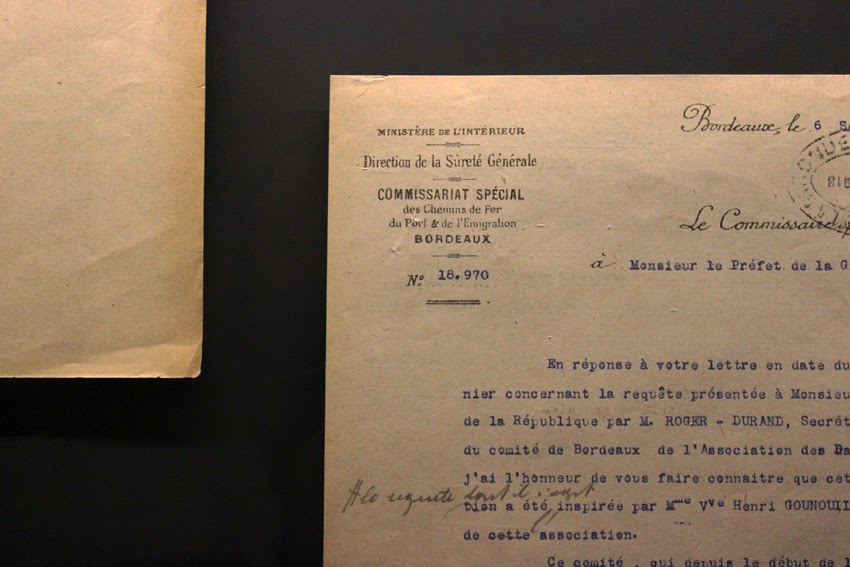 MINISTÈRE DE L'INTÉRIEUR
Direction de la Sûreté Générale
COMMISSARIAT SPÉCIAL
des Chemins de Fer
du Port & de l'Emigration
BORDEAUX
N.º 18.970
Bordeaux, le 6
Le Commissaire
à Monsieur le Préfet de la G
En réponse à votre lettre en date du
nier concernant la requête présentée à Monsieu
de la République par M. ROGER - DURAND, Secrét
du comité de Bordeaux de l'Association des Da
j'ai l'honneur de vous faire connaitre que cet
A la requete dont il s'agit
tion a été inspirée par Mme Vve Henri GOUNOUIL
de cette association.
Ce comité, qui depuis le début de l